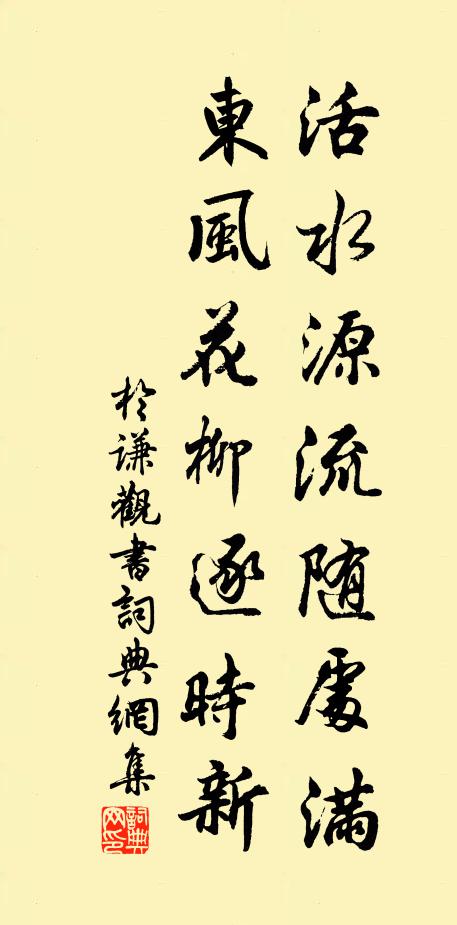 活水源流随處滿
東風花柳逐時新
於謙觀書詞典網集
詞典网印